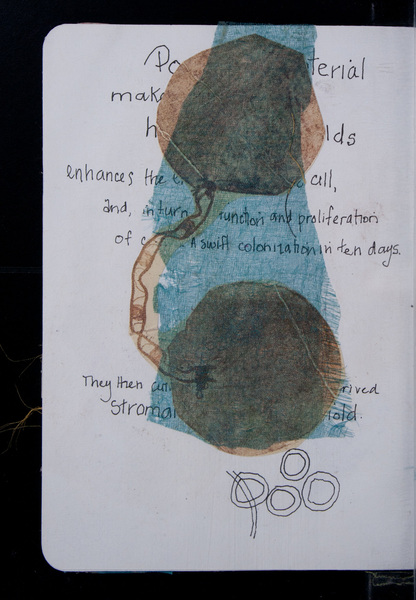 Po terial
mak
h lds
enhances the call,
and, in turn function and proliferation
of A swift colonization in ten days.
They then rived
stroma old.